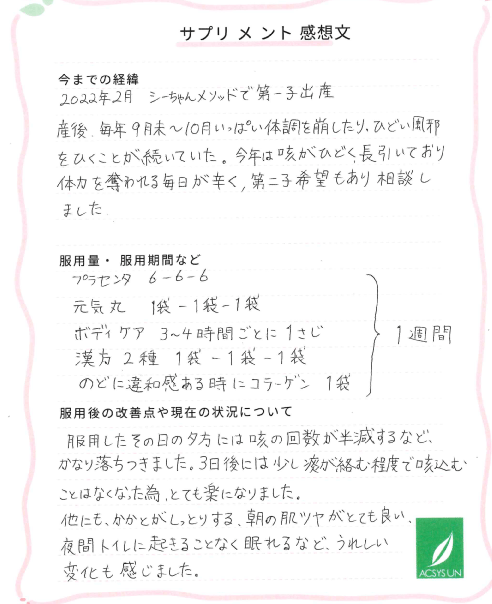 サプリメント感想文
今までの経緯
2022年2月 シーちゃんメソッドで第一子出産
産後、毎年9月末〜10月いっぱい体調を崩したり、ひどい風邪
をひくことが続いていた。今年は咳がひどく長引いており
体力を奪われる毎日が辛く、第二子希望もあり相談し
ました
服用量・服用期間など
プラセンタ 6-6-6
元気丸 1袋-1袋-1袋
ボディケア 3~4時間ごとに1さじ
漢方2種 1袋-1袋-1袋
のどに違和感ある時にコラーゲン 1袋
1週間
服用後の改善点や現在の状況について
服用したその日の夕方には咳の回数が半減するなど、
かなり落ちつきました。3日後には少し痰が絡む程度で咳込む
ことはなくなった為、とても楽になりました。
他にも、かかとがしっとりする、朝の肌ツヤがとても良い、
夜間トイレに起きることなく眠れるなど、うれしい
変化も感じました。
ACSYSUN